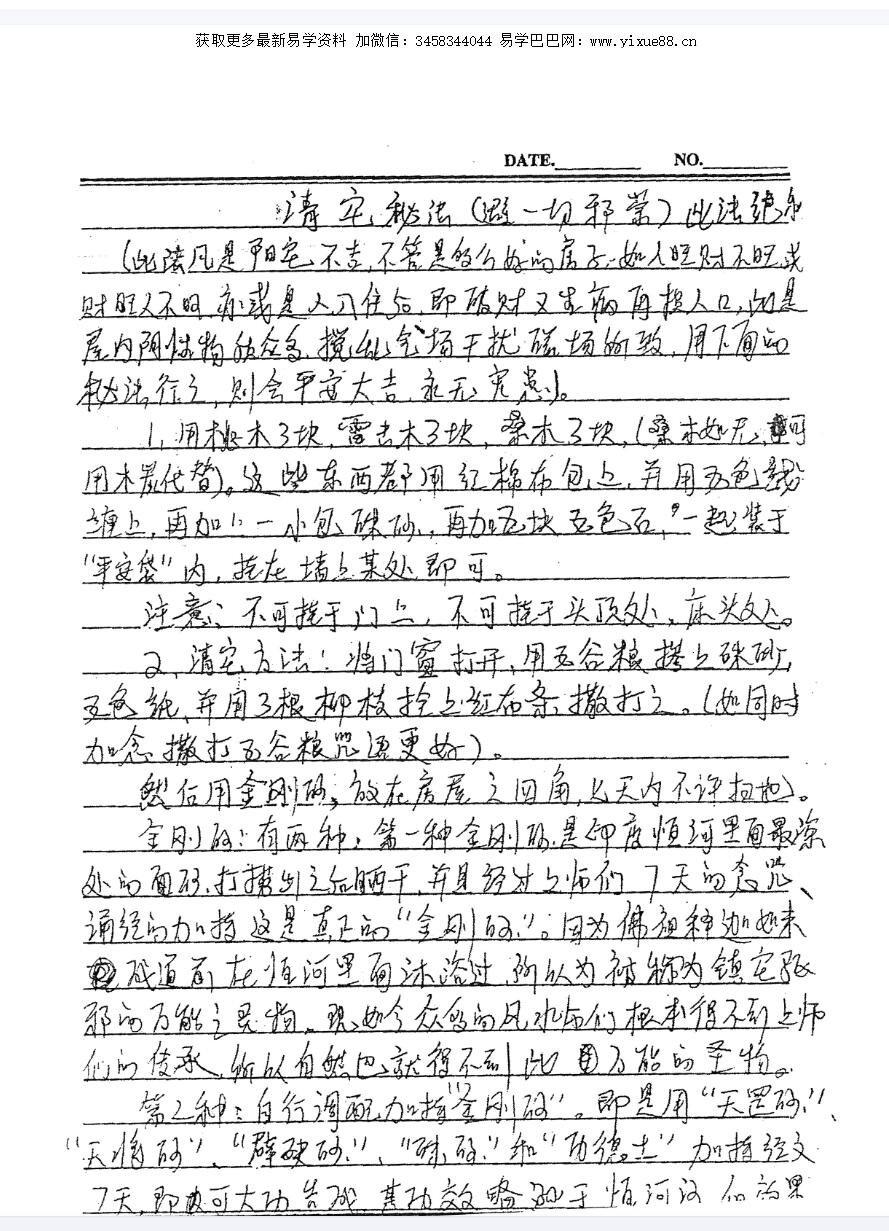 获取更多最新易学资料 加微信：3458344044 易学巴巴网：www.yixue88.cn
DATE.________ NO.________
清宅秘法（避一切邪祟）此法绝
（此法凡是阳宅不吉，不管是多么好的房子，如人旺财不旺或
财旺人不旺，亦或是人入住后，即破财又生病再损人口，此是
屋内阴性物质众多，搅乱气场干扰磁场所致，用下面的
秘法行之，则会平安大吉，永无害患）。
1、用桃木3块，雷击木3块，桑木3块，（桑木如无，可
用木炭代替）。这些东西都用红棉布包上，并用五色线
缠上，再加上一小包硃砂，再加五块五色石，一起装于
“平安袋”内，挂在墙上某处即可。
注意：不可挂于门上，不可挂于头顶处，床头处。
2、清宅方法：将门窗打开，用五谷粮拌上硃砂，
五色纸，并用3根柳枝拴上红布条，撒打之。（如同时
加念撒打五谷粮咒语更好）。
然后用金刚砂，放在房屋之四角，七天内不许扫地）。
金刚砂：有两种，第一种金刚砂是印度恒河里面最深
处的面砂，打捞出之后晒干，并且经过上师们7天的念咒、
诵经的加持，这是真正的“金刚砂”。因为佛祖释迦如来
成道前在恒河里面沐浴过，所以为被称为镇宅驱
邪的万能之灵物。现如今众多的风水师们根本得不到上师
们的传承，所以自然也就得不到此万能的圣物。
第2种：自行调配加持“金刚砂”。即是用“天罡砂”、
“天将砂”、“辟砂”、“硃砂”和“功德土”加持经文
7天，即可大功告成，其功效略弱于恒河沙